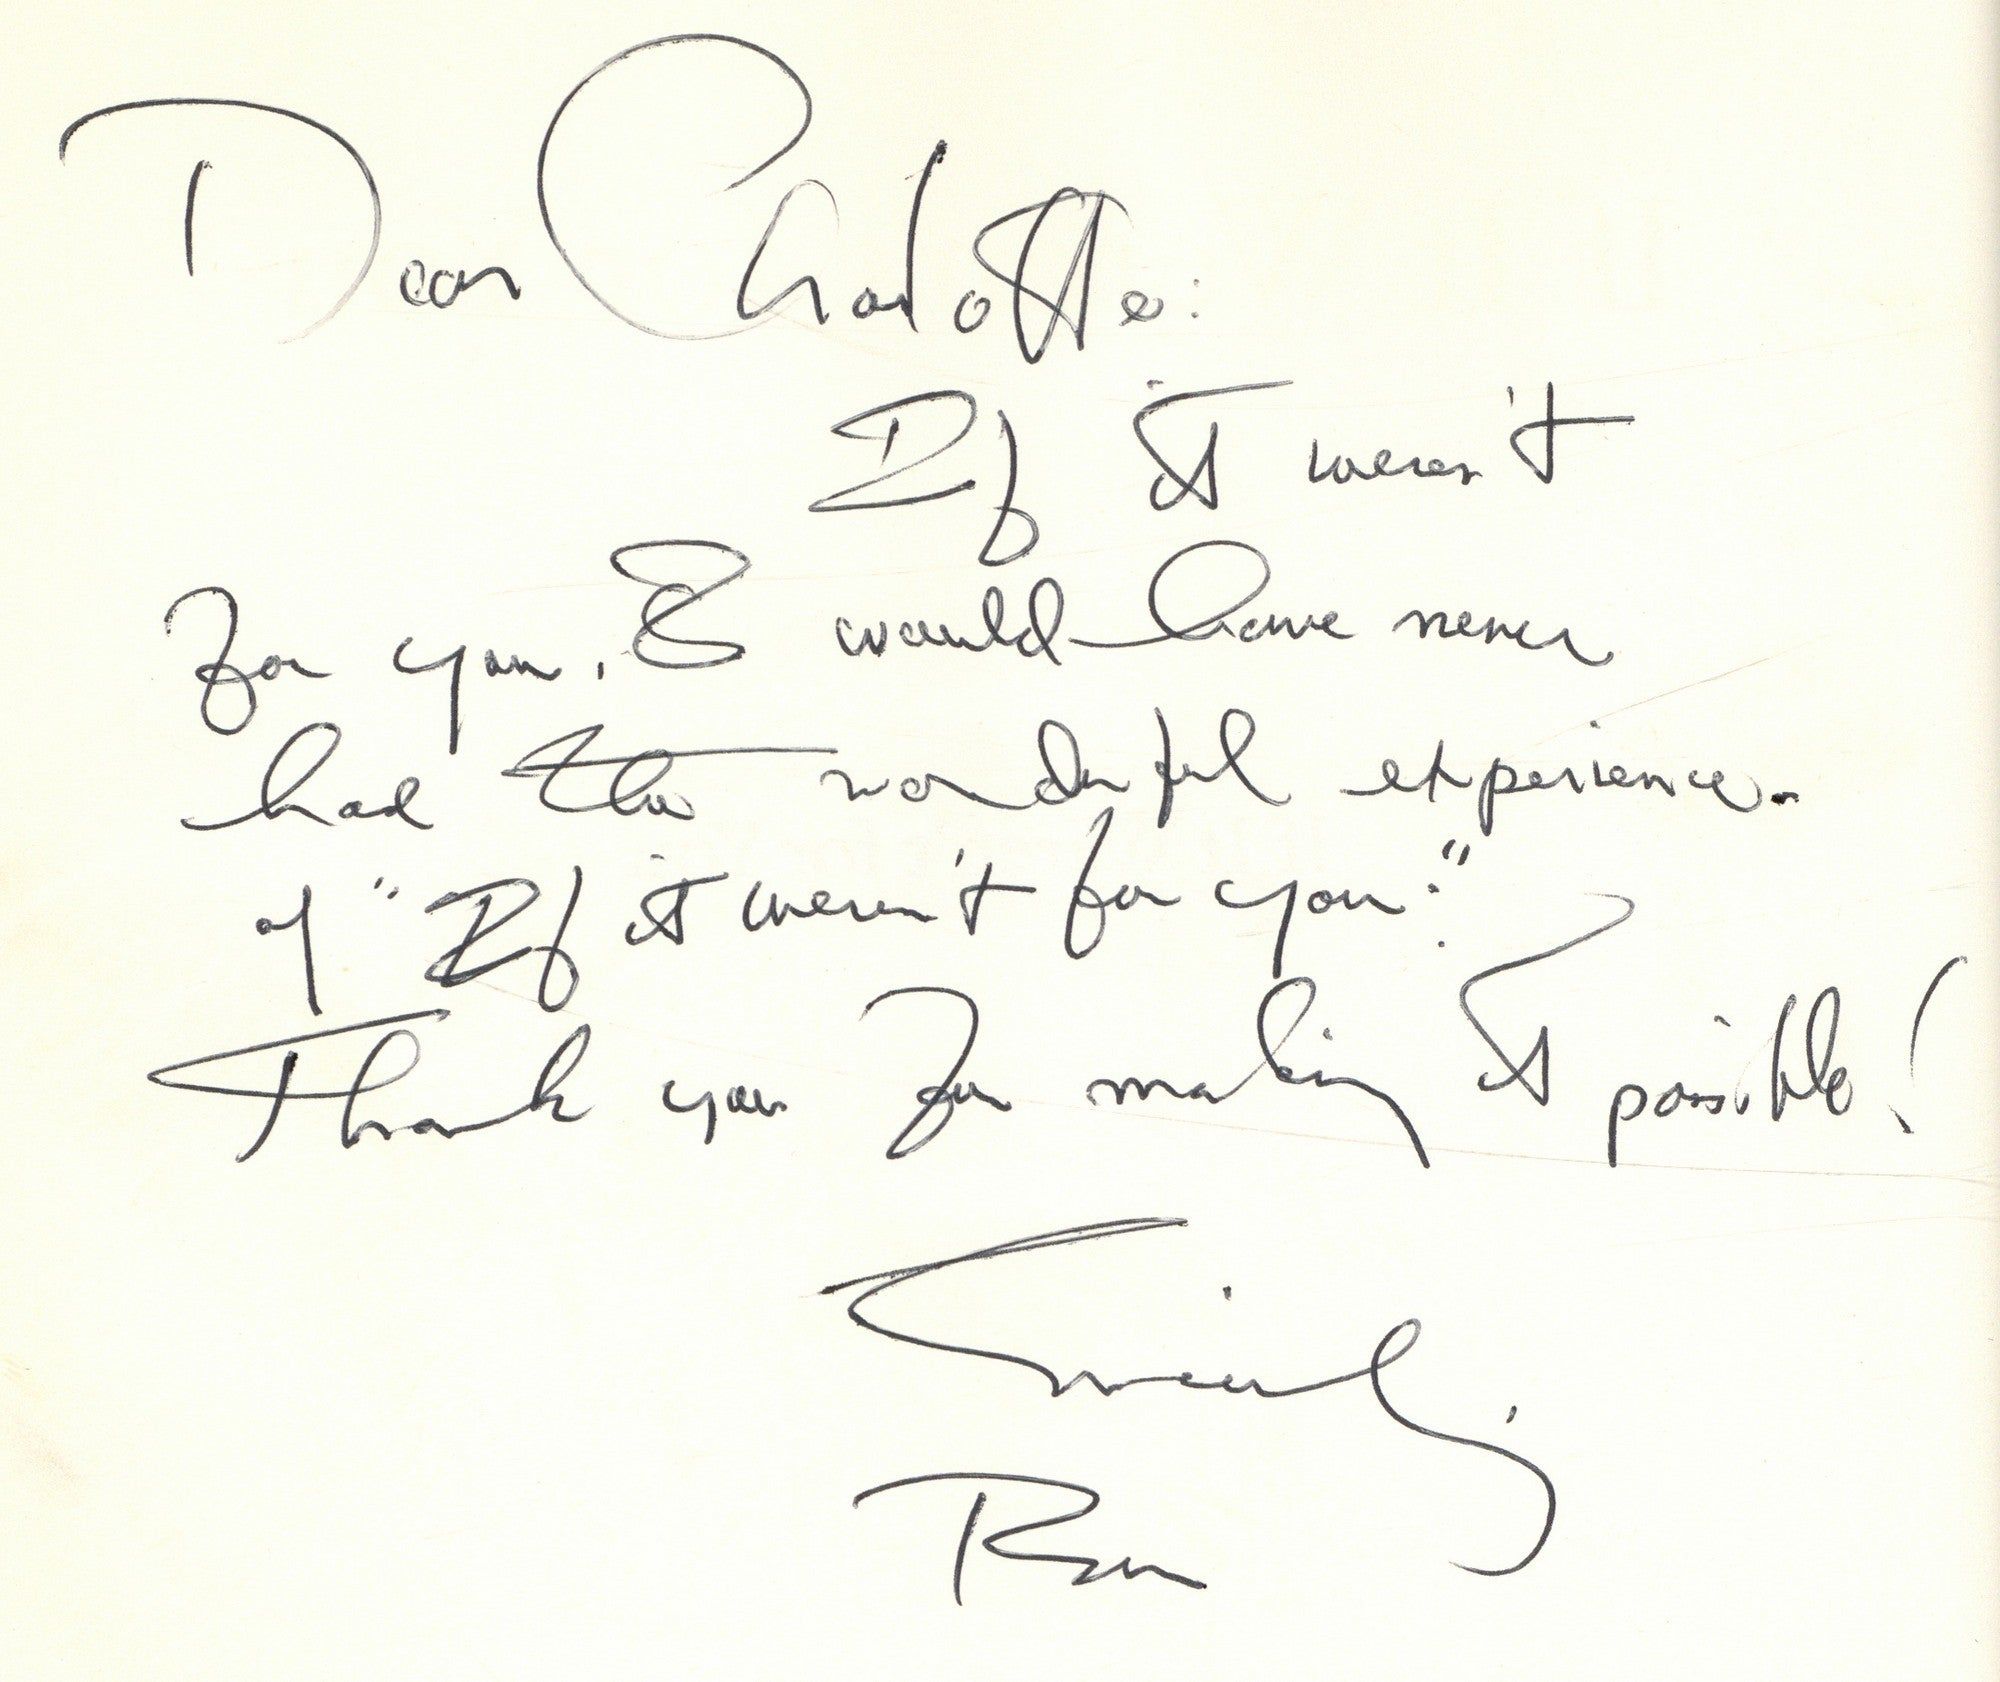 Dear Charlotte:
If it weren't
for you, I would have never
had the wonderful experience.
of "If it weren't for you."
Thank you for making it possible!
Sincerely,
Ron